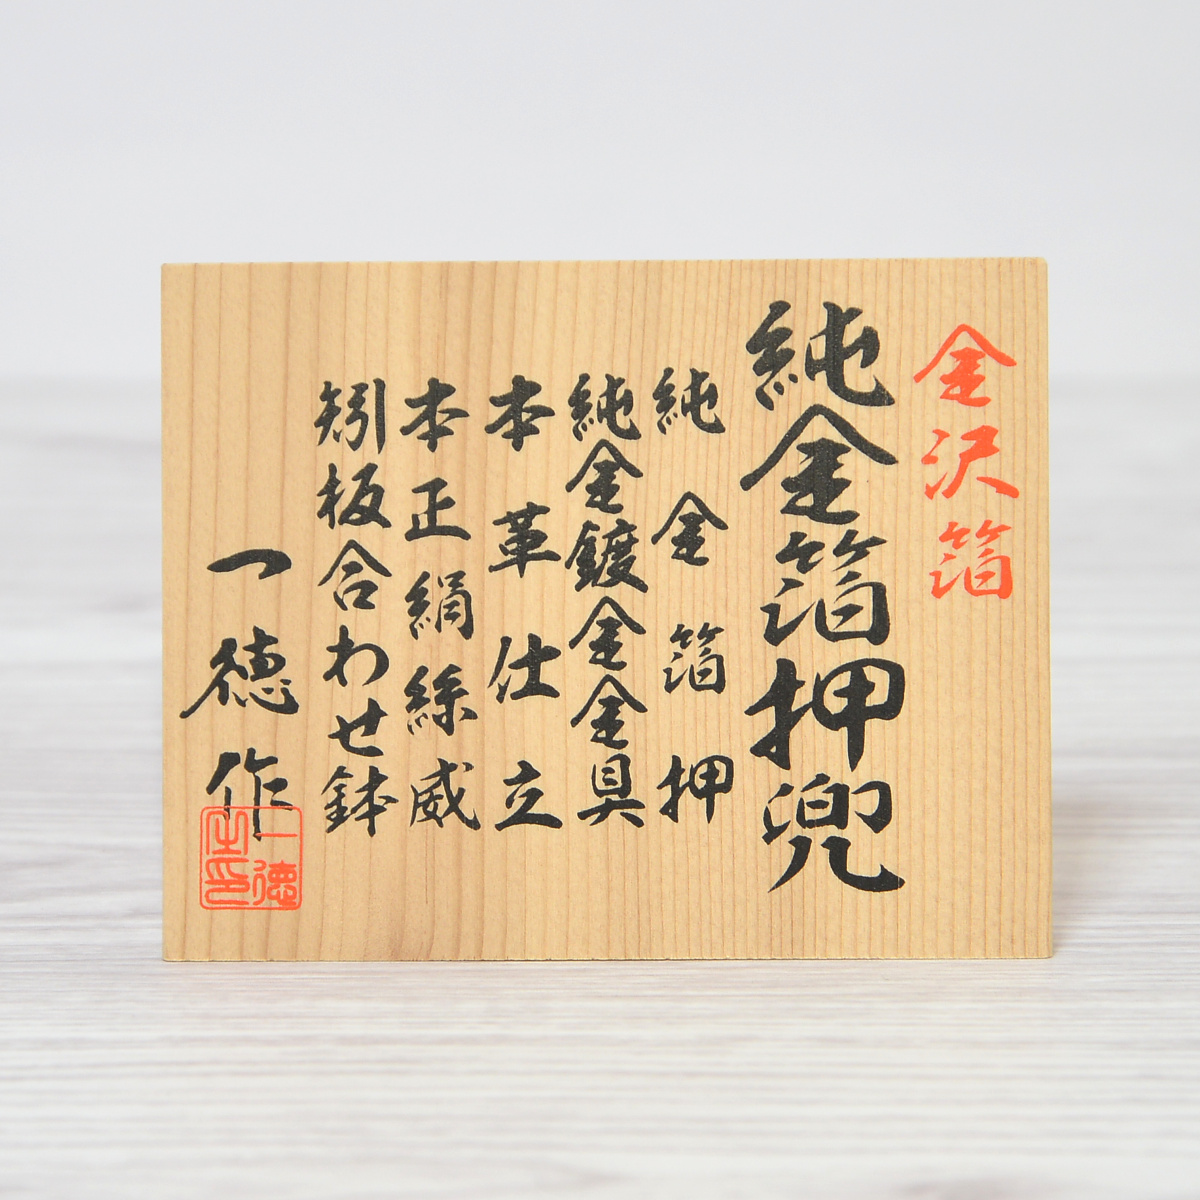 金沢箔
純金箔押兜
純金箔押
純金鍍金金具
本革仕立
本正絹絲威
矧板合わせ鉢
一徳作
一徳之印